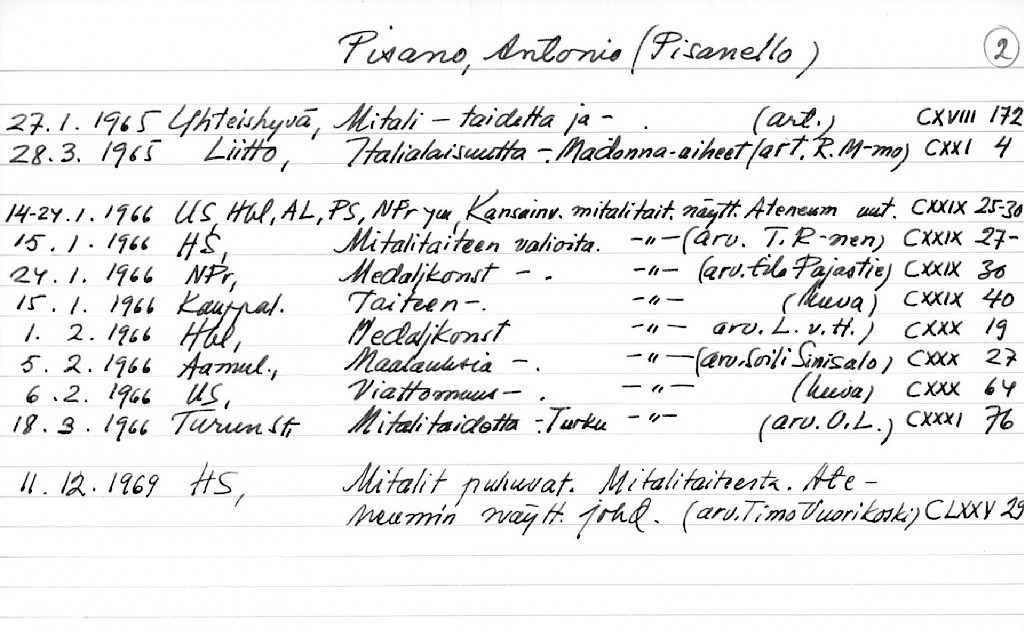 Pisano, Antonio (Pisanello) 2
27.1.1965 Yhteishyvä, Mitali - taidetta ja - . (art.) CXVIII 172
28.3.1965 Liitto, Italialaisuutta -. Madonna-aiheet (art. R.M-mo) CXXI 4
14-24.1.1966 US, Hbl, AL, PS, NPr ym, Kansainv. mitalitait. näytt. Ateneum uut. CXXIX 25-30
15.1.1966 HS, Mitalitaiteen valioita. -"- (arv. T. R-nen) CXXIX 27-
24.1.1966 NPr, Medaljkonst - . -"- (arv. Pajastie) CXXIX 30
15.1.1966 Kauppal. Taiteen -. -"- (kuva) CXXIX 40
1.2.1966 Hbl, Medaljkonst -"- arv. L.v.H.) CXXX 19
5.2.1966 Aamul., Maalauksia - . -"- (arv. Soili Sinisalo) CXXX 27
6.2.1966 US, Viattomuus - . -"- (kuva) CXXX 64
18.3.1966 Turun S. Mitalitaidetta -. Turku -"- (arv. O.L.) CXXXI 76
11.12.1969 HS, Mitalit puhuvat. Mitalitaiteesta. Ate-
neumin näytt. johd. (arv. Timo Vuorikoski) CLXXV 29